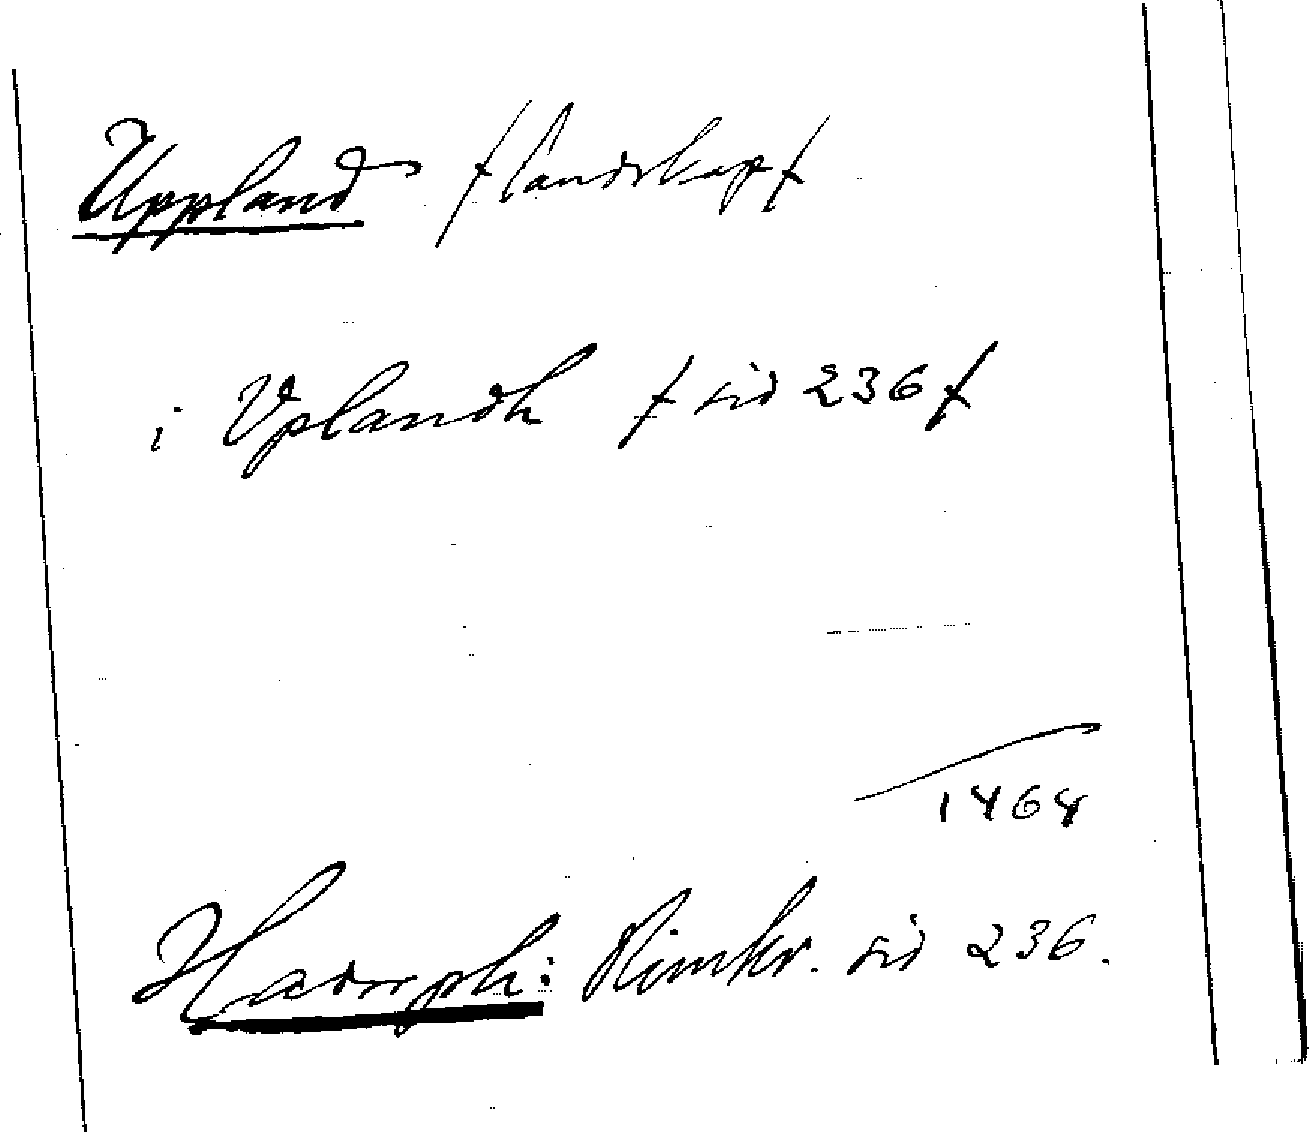 Uppland /landskap/
i Vplandh /sid 236/
1464
Hadorph: Rimkr. sid 236.